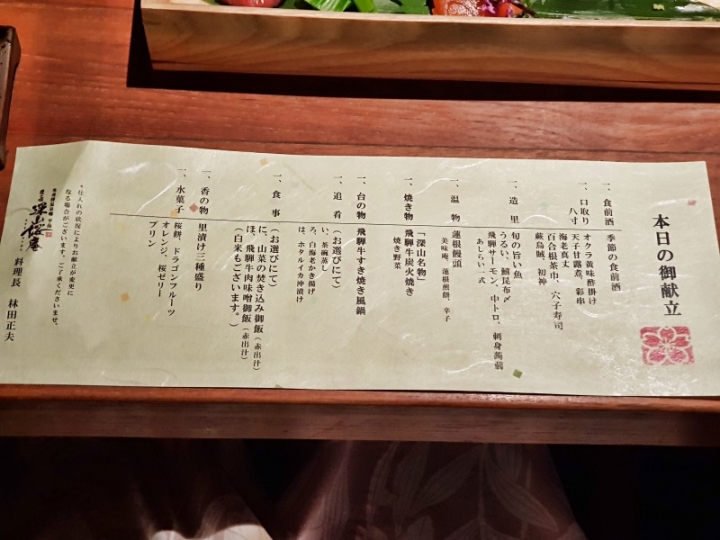 本日の御献立
一、食前酒 季節の食前酒
一、口取り オクラ黄味酢掛け
八寸 天子甘露煮、彩串
海老真丈
百合根茶巾、穴子寿司
蕨烏賊、初神
一、造里 旬の旨い魚
うるい、鯛昆布〆
飛騨サーモン、中トロ、刺身蒟蒻
あしらい一式
一、温物 蓮根饅頭
美味庵、蓮根煎餅、辛子
一、焼き物 「深山名物」
飛騨牛炭火焼き
焼き野菜
一、台の物 飛騨牛すき焼き風鍋
一、追肴 (お選びにて)
い、茶碗蒸し
ろ、白海老かき揚げ
は、ホタルイカ沖漬け
一、食事 (お選びにて)
に、山菜の焚き込み御飯(赤出汁)
ほ、飛騨牛肉味噌御飯(赤出汁)
(白米もございます。)
一、香の物 里漬け三種盛り
一、水菓子 桜餅、ドラゴンフルーツ
オレンジ、桜ゼリー
プリン
*仕入れの状況によりお献立が変更に
なる場合がございます。ご了承くださいませ。
深山桜庵
料理長 林田正夫